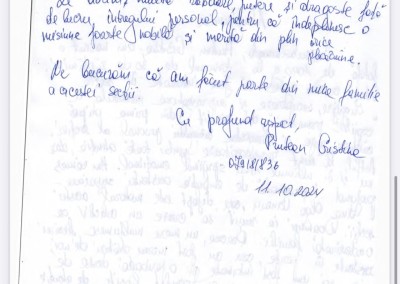 multă răbdare, putere și dragoste față
de lucru, întregului personal, pentru că îndeplinesc o
misiune foarte nobilă și merită din plin orice
prețuire.
Ne bucurăm că am făcut parte din mica familie
a acestei secții.
Cu profund respect,
Cristina
11.10.2024